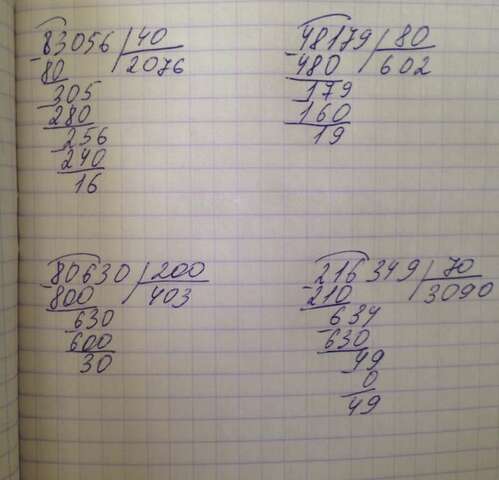 83056 40
80 2076
305
280
256
240
16
48179 80
480 602
179
160
19
80630 200
800 403
630
600
30
216349 70
210 3090
634
630
49
0
49